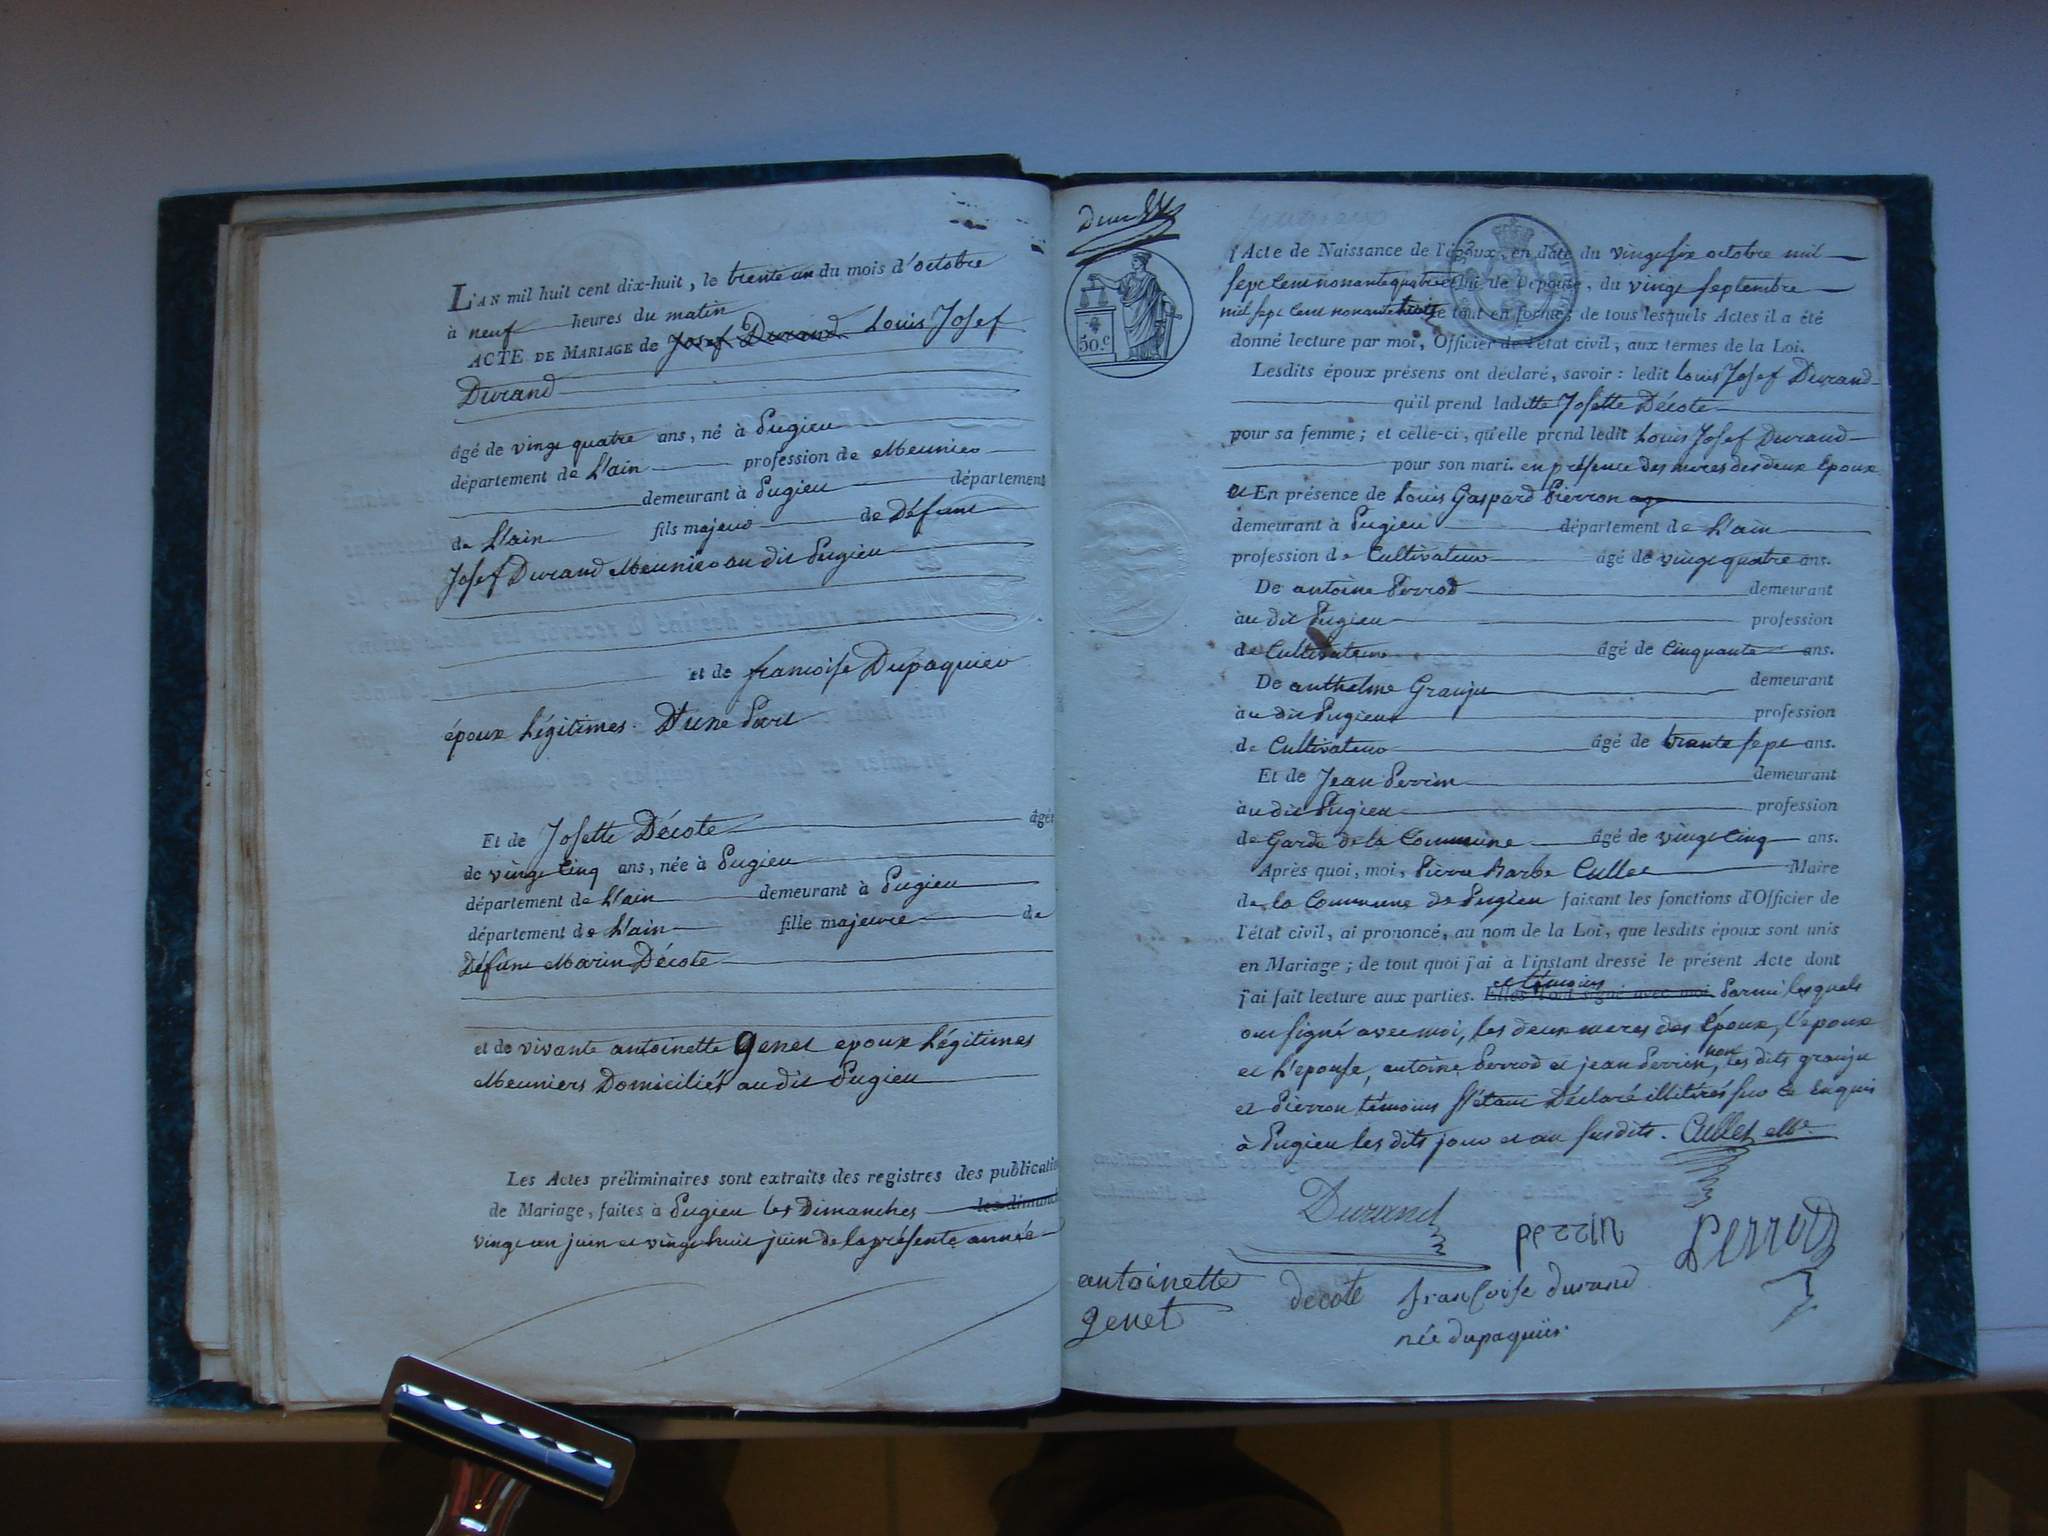 L'AN mil huit cent dix-huit, le trente un du mois d'octobre
à neuf heures du matin
ACTE DE MARIAGE de Josef Durand Louis Josef
Durand
âgé de vingt quatre ans, né à Pugieu
département de L'ain profession de Meunier
demeurant à Pugieu département
de L'ain fils majeur de Défunt
Josef Durand Meunier au dit Pugieu
et de francoise Dupaquier
époux Légitimes D'une Part
Et de Josette Décote âgée
de vingt Cinq ans, née à Pugieu
département de L'ain demeurant à Pugieu
département de L'ain fille majeure de
Défunt Marin Décote
et de vivante antoinette genet epoux Légitimes
Meuniers Domiciliés au dit Pugieu
Les Actes préliminaires sont extraits des registres des publicati
de Mariage, faites à Pugieu les Dimanches les dimanc
vingt un juin et vingt huit juin de la présente année
50.c
l'Acte de Naissance de l'époux, en date du vingt six octobre mil
sept cent nonante quatre celui de l'épouse, du vingt septembre
mil sept cent nonante trois le tout en formes de tous lesquels Actes il a été
donné lecture par moi, Officier de l'état civil, aux termes de la Loi.
Lesdits époux présens ont déclaré, savoir : ledit Louis Josef Durand
qu'il prend ladite Josette Décote
pour sa femme ; et celle-ci, qu'elle prend ledit Louis Josef Durand
pour son mari. en présence des meres des deux Epoux
et En présence de Louis Gaspard Pierron
demeurant à Pugieu département de L'ain
profession de Cultivateur âgé de vingt quatre ans.
De antoine Perrod demeurant
au dit Pugieu profession
de Cultivateur âgé de Cinquante ans.
De anthelme Granju demeurant
au dit Pugieu profession
de Cultivateur âgé de trente sept ans.
Et de Jean Perrin demeurant
au dit Pugieu profession
de Garde de la Commune âgé de vingt Cinq ans.
Après quoi, moi, Pierre Barbe Cullet Maire
de la Commune de Pugieu faisant les fonctions d'Officier de
l'état civil, ai prononcé, au nom de la Loi, que lesdits époux sont unis
en Mariage ; de tout quoi j'ai à l'instant dressé le présent Acte dont
et témoins
j'ai fait lecture aux parties. Elles l'ont signé avec moi Parmi lesquels
ont signé avec moi, les deux meres des Époux, l'époux
et L'epouse, antoine Perrod et jean Perrin, non les dits granju
et Pierron témoins s'étant Déclaré illitérés sur ce Enquis
à Pugieu les dits jour et an susdits. Cullet
Durand
perrin
Perrod
antoinette
genet
decote
francoise durand
née dupaquier